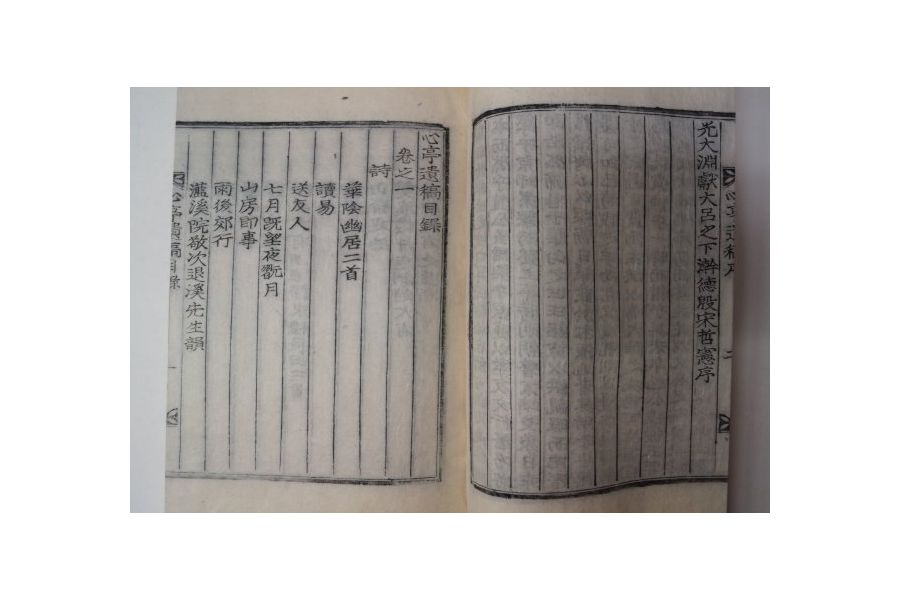 光大淵獻大呂之下澣德殷宋哲憲序
心亭遺稿序
二
心亭遺稿目錄
卷之一
詩
華陰幽居二首
讀易
送友人
七月旣望夜翫月
山房卽事
雨後郊行
瀘溪院敬次退溪先生韻
心亭遺稿目錄
一